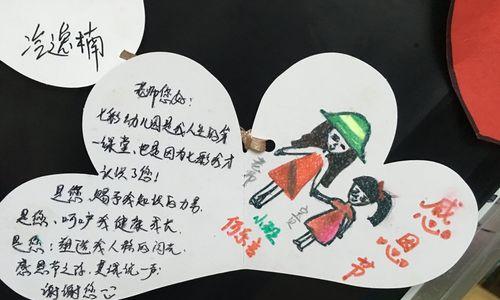 冷逸楠
老师您好：
七彩幼儿园是我人生的第
一课堂，也是因为七彩我才
认识了您！
是您，赐予我起捉的力易，
是您、呵护我健康成长，
是您：塑造我人格的闪光，
感恩节之际，真诚说一声：
谢谢您
老师
小班
何乐言
感恩节